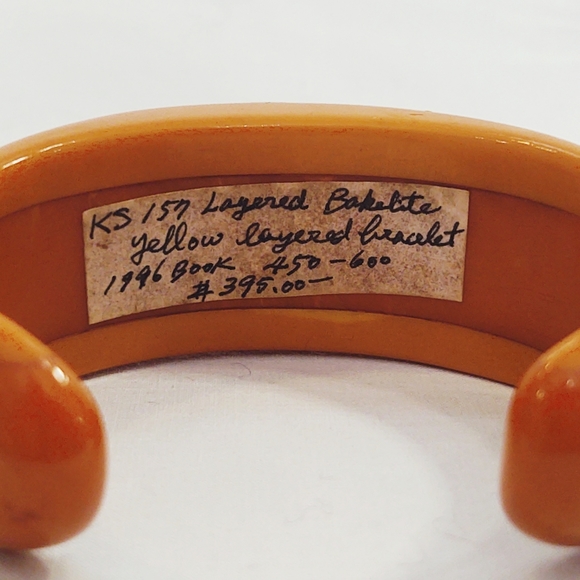 KS 157 Layered Bakelite
yellow layered bracelet
1996 Book 450-600
#395.00-